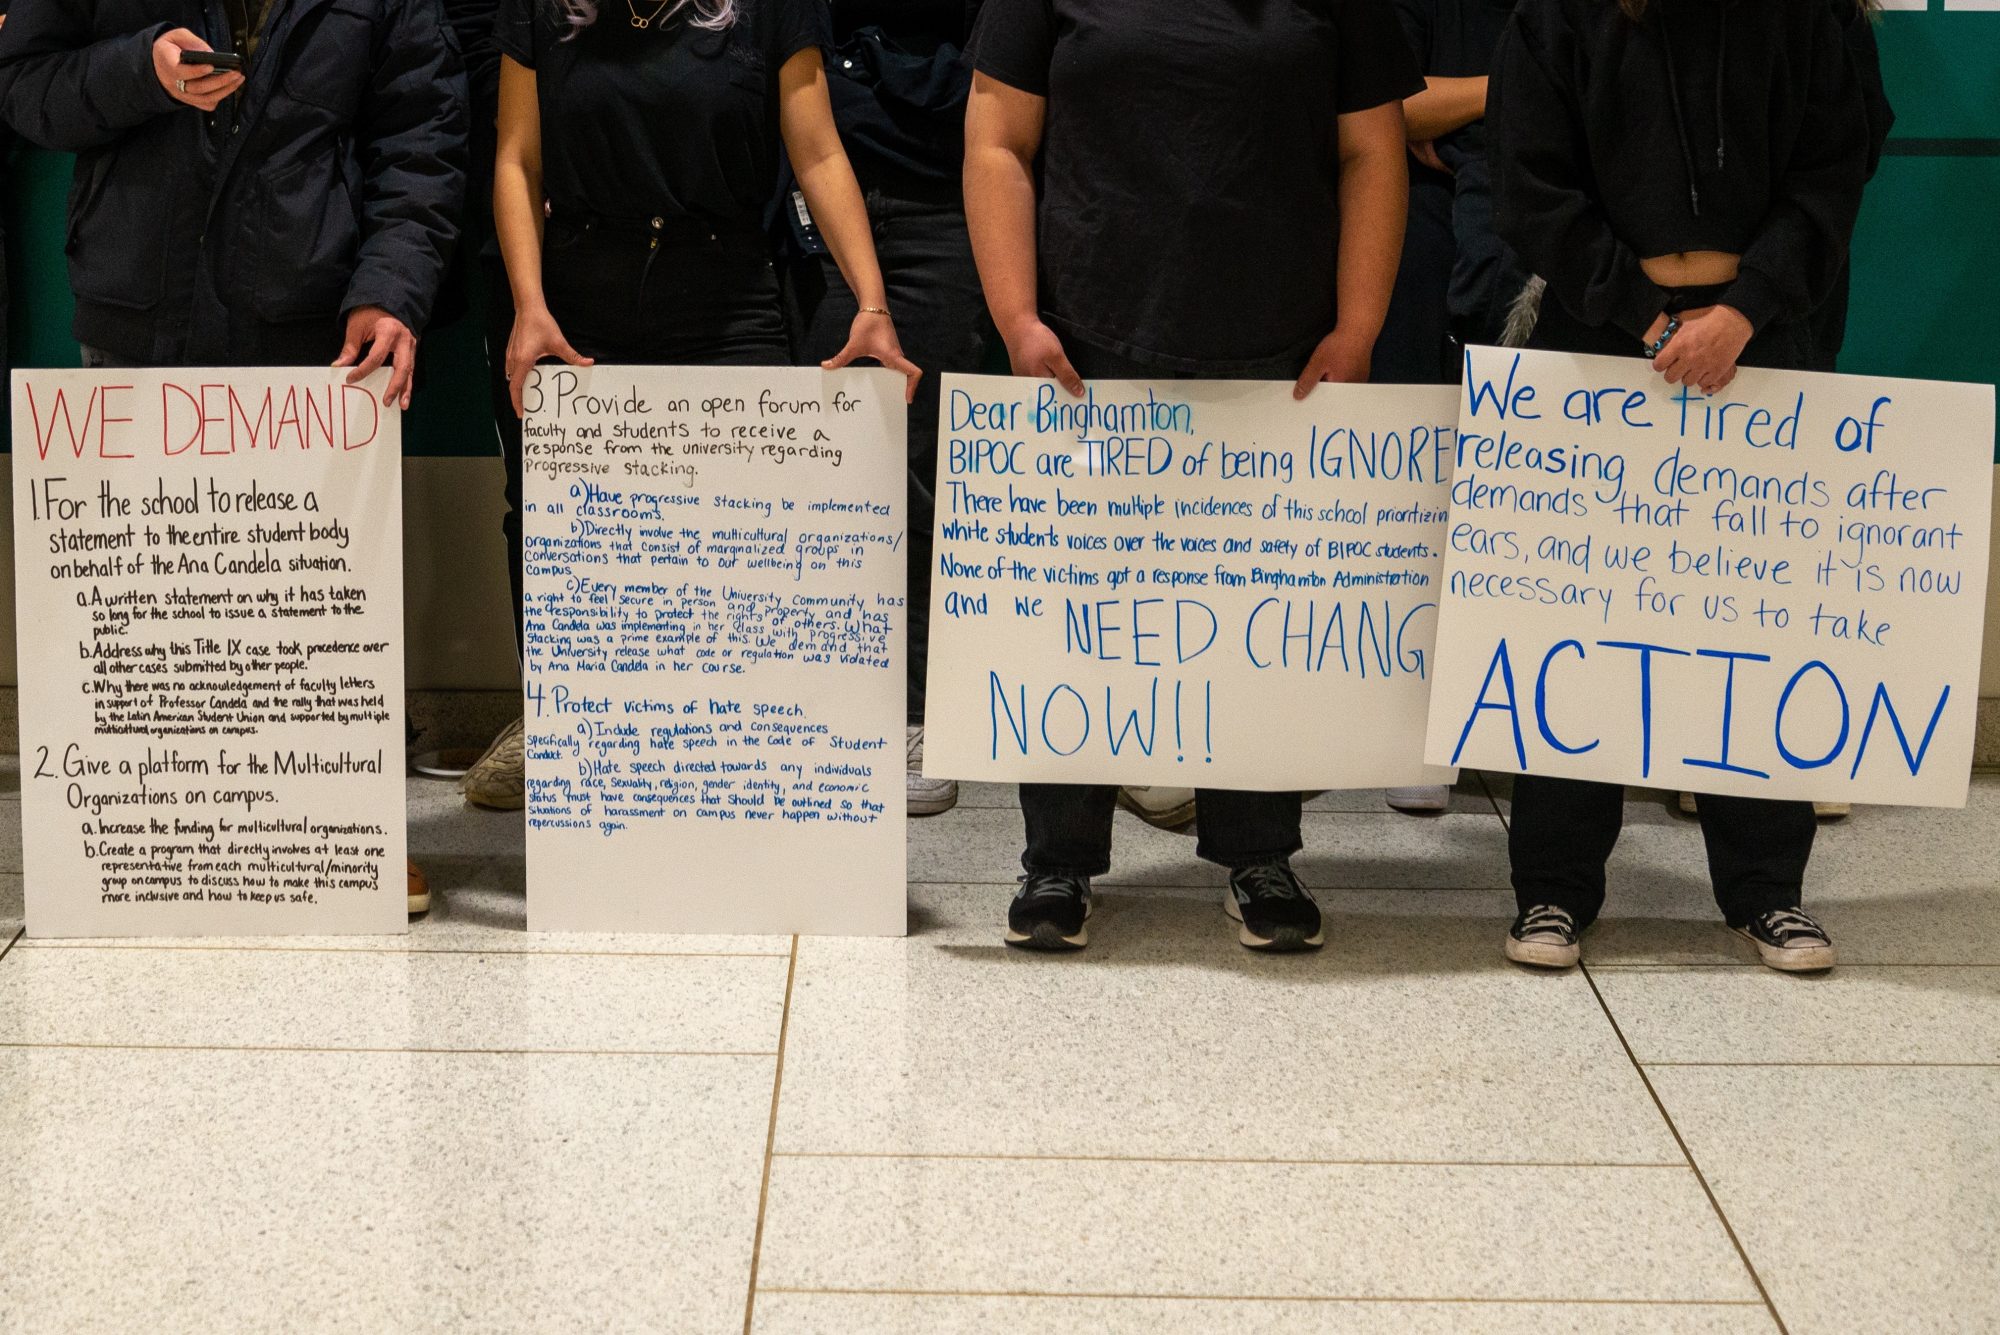 WE DEMAND
1. For the school to release a
statement to the entire student body
on behalf of the Ana Candela situation.
a. A written statement on why it has taken
so long for the school to issue a statement to the
public.
b. Address why this Title IX case took precedence over
all other cases submitted by other people.
c. Why there was no acknowledgement of faculty letters
in support of Professor Candela and the rally that was held
by the Latin American Student Union and supported by multiple
multicultural organizations on campus.
2. Give a platform for the Multicultural
Organizations on campus.
a. Increase the funding for multicultural organizations.
b. Create a program that directly involves at least one
representative from each multicultural/minority
group on campus to discuss how to make this campus
more inclusive and how to keep us safe.
3. Provide an open forum for
faculty and students to receive a
response from the university regarding
Progressive stacking.
a) Have progressive stacking be implemented
in all classrooms.
b) Directly involve the multicultural organizations/
organizations that consist of marginalized groups in
conversations that pertain to our wellbeing on this
campus
c) Every member of the University Community has
a right to feel secure in person and property and has
the responsibility to protect the rights of others. What
Ana Candela was implementing in her class with progressive
stacking was a prime example of this. We demand that
the University release what code or regulation was violated
by Ana Maria Candela in her course.
4. Protect victims of hate speech.
a) Include regulations and consequences
specifically regarding hate speech in the Code of Student
Conduct.
b) Hate speech directed towards any individuals
regarding race, sexuality, religion, gender identity, and economic
status must have consequences that should be outlined so that
situations of harassment on campus never happen without
repercussions again.
Dear Binghamton,
BIPOC are TIRED of being IGNORE
There have been multiple incidences of this school prioritizin
white students voices over the voices and safety of BIPOC students.
None of the victims got a response from Binghamton Administration
and we NEED CHANG
NOW!!
We are tired of
releasing demands after
demands that fall to ignorant
ears, and we believe it is now
necessary for us to take
ACTION